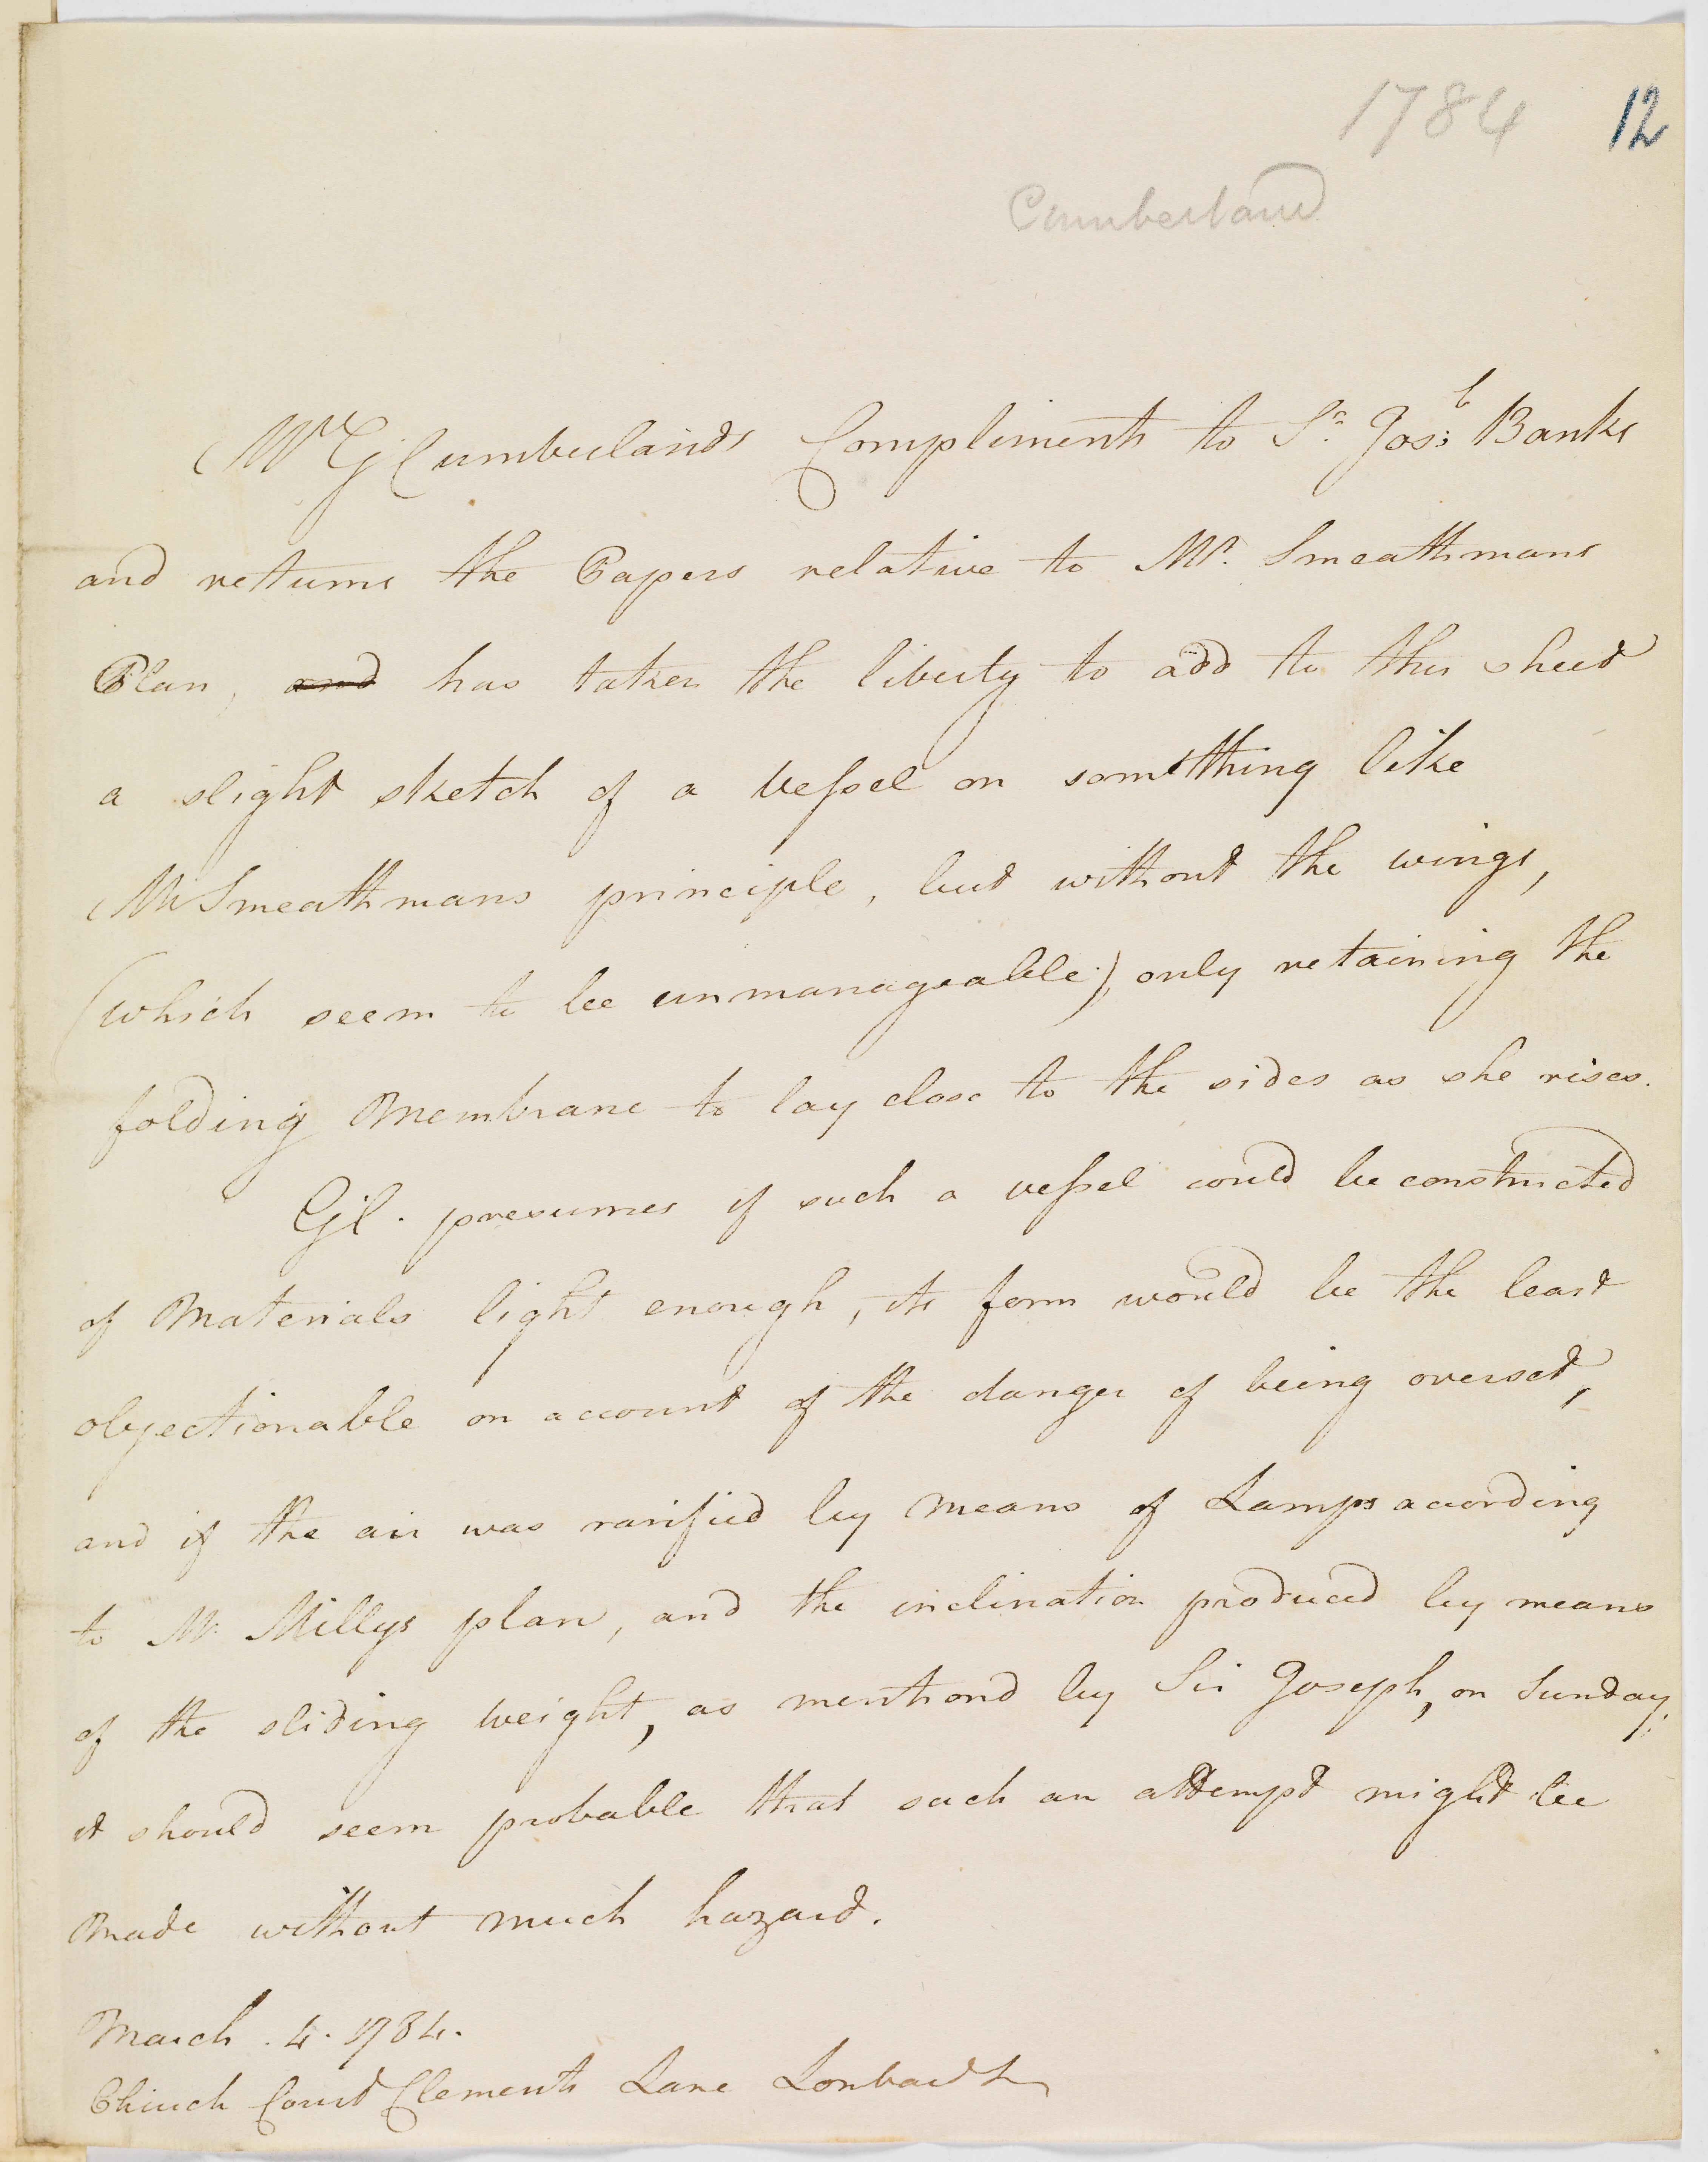 1784 12
Cumberland
Mr G Cumberlands Compliments to Sr. Josh: Banks
and returns the Papers relative to Mr. Smeathmans
Plan, and has taken the liberty to add to this sheet
a slight sketch of a Veſsel on somthing like
Mr Smeathmans principle, but without the wings,
(which seem to be unmanageable), only retaining the
folding Membrane to lay close to the sides as she rises.
GC. presumes if such a veſsel could be constructed
of Materials light enough, its form would be the least
objectionable on account of the danger of being overset,
and if the air was rarified by Means of Lamps according
to Mr. Millys plan, and the inclination produced by means
of the sliding weight, as mentiond by Sir Joseph, on Sunday,
it should seem probable that such an attempt might be
Made without much hazard.
March . 4. 1784.
Church Court Clements Lane Lombard St